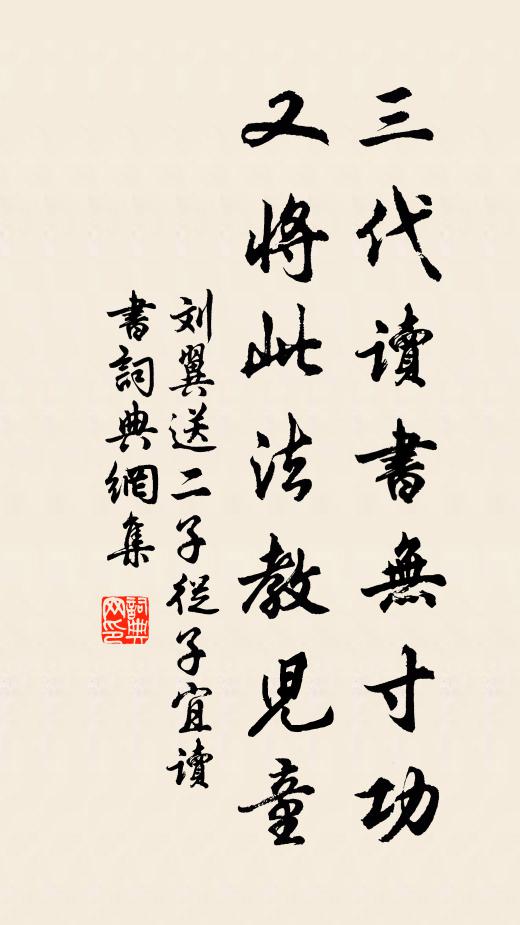 三代讀書無寸功
又將此法教兒童
刘翼送二子從子宜讀
書詞典網集
詞典网印